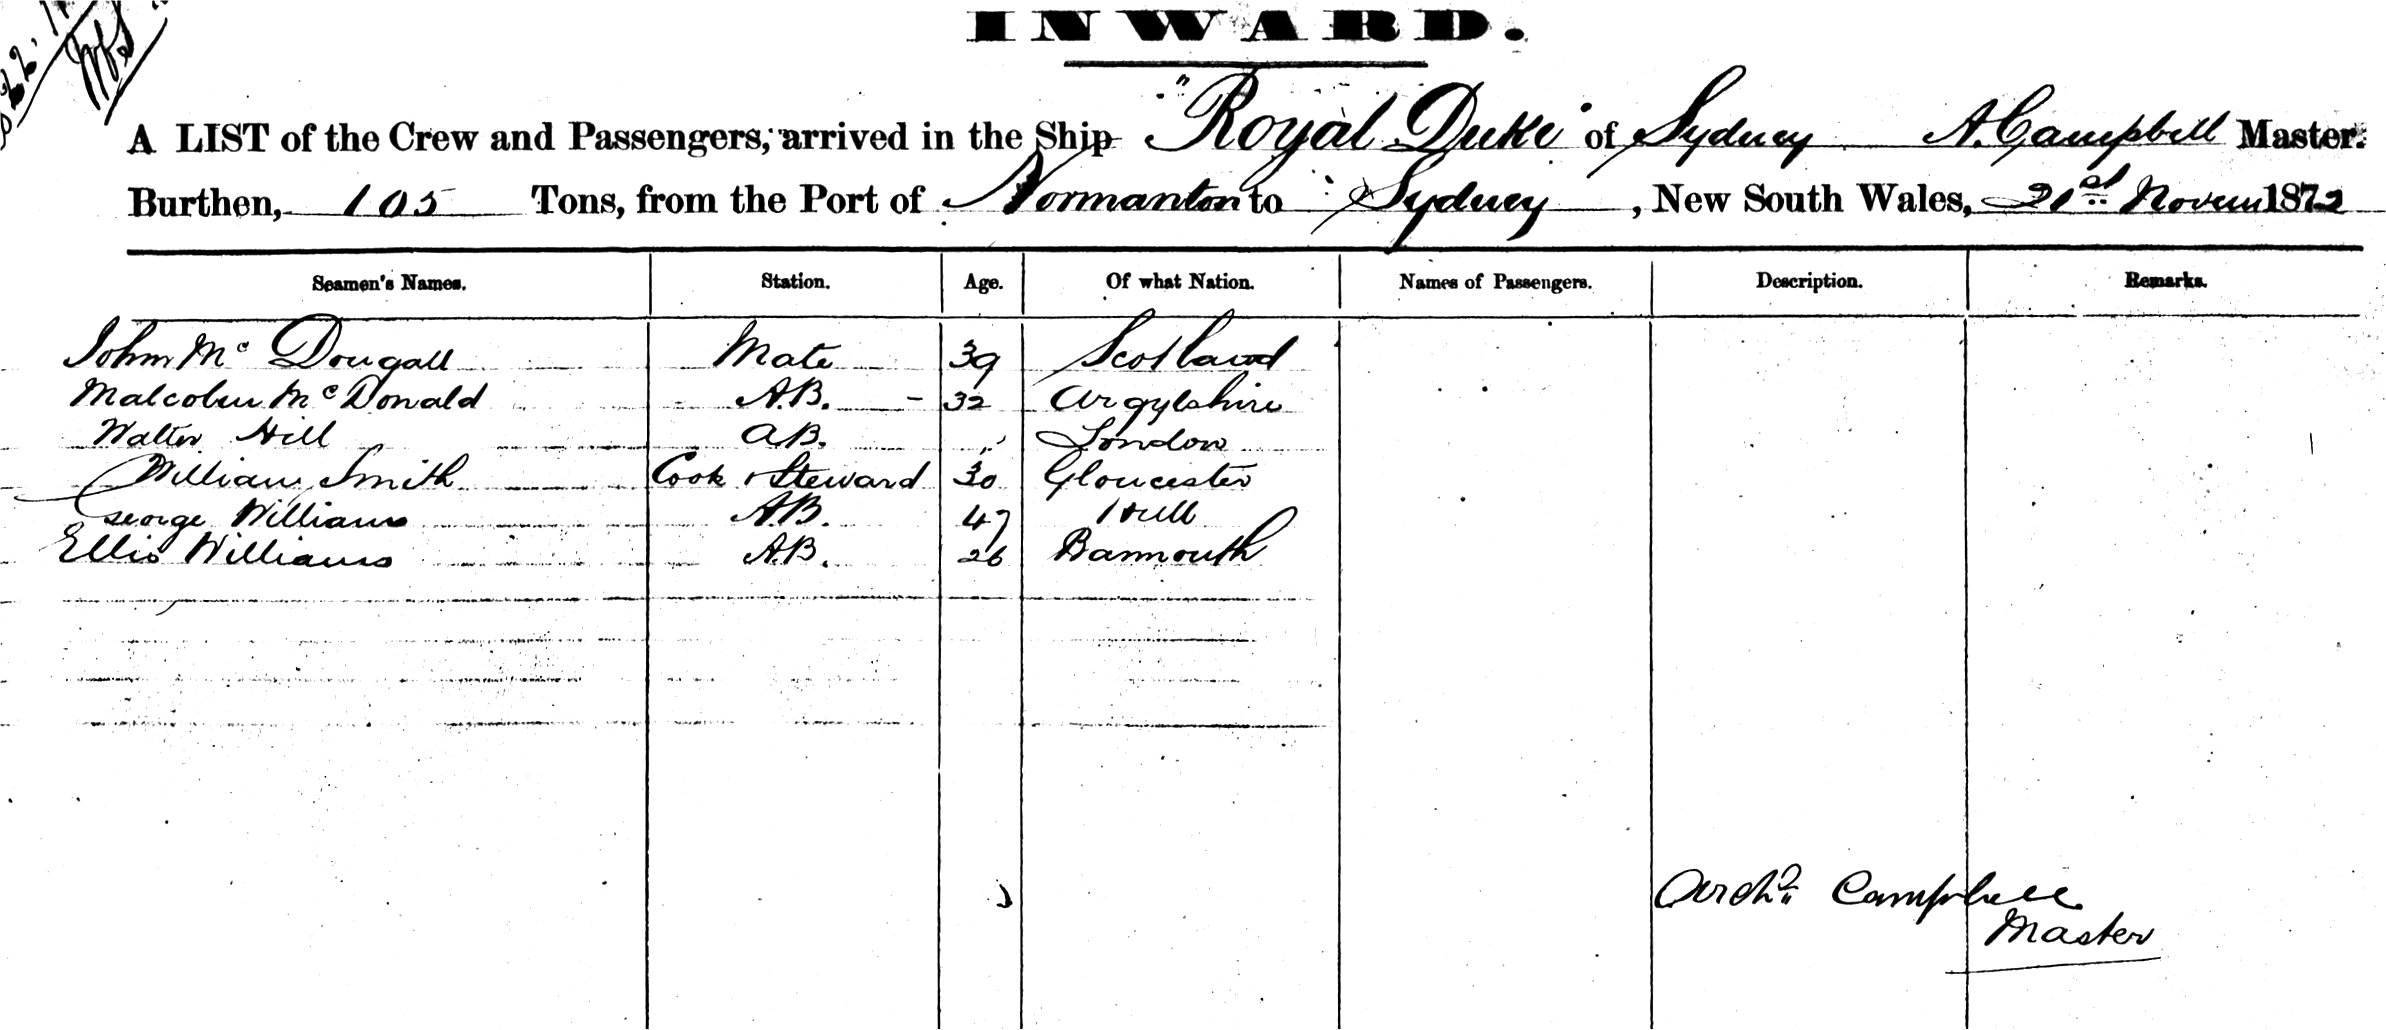 INWARD.
A LIST of the Crew and Passengers, arrived in the Ship "Royal Duke" of Sydney A. Campbell Master.
Burthen, 105 Tons, from the Port of Normanton to Sydney, New South Wales, 21st Novem 1872
Seamen's Names. Station. Age. Of what Nation. Names of Passengers. Description. Remarks.
John Mc Dougall Mate 39 Scotland
Malcolm Mc Donald A.B. - 32 Argylshire
Walter Hill A.B. " London
William Smith Cook & Steward 30 Gloucester
George Williams A.B. 47 Hull
Ellis Williams A.B. 26 Barmouth
Archd Campbell
Master